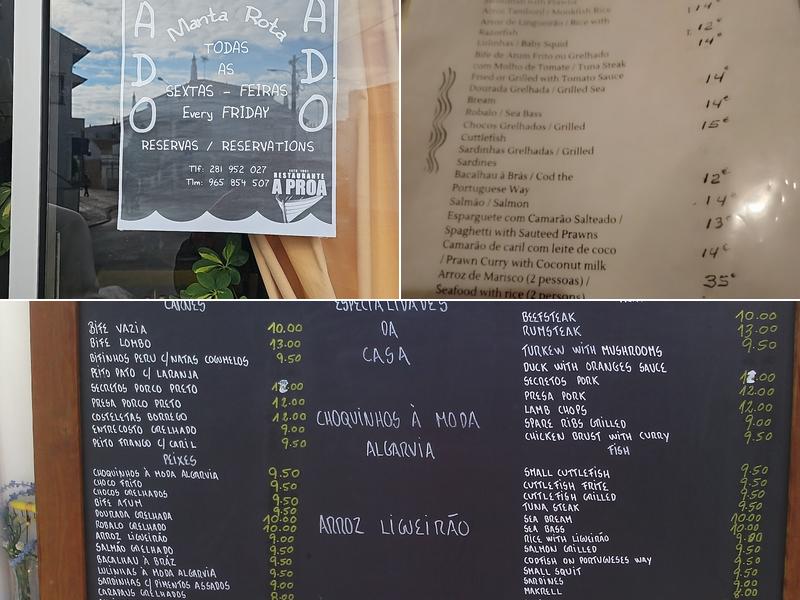 A
D
O
Manta Rota
TODAS
AS
SEXTAS - FEIRAS
Every FRIDAY
A
D
O
RESERVAS / RESERVATIONS
Tlf: 281 952 027
Tlm: 965 854 507
RESTAURANTE
A PROA
Arroz Tamboril / Monkfish Rice 14€
Arroz de Lingueirão / Rice with
Razorfish 12€
Lulinhas / Baby Squid 14€
Bife de Atum Frito ou Grelhado
com Molho de Tomate / Tuna Steak
Fried or Grilled with Tomato Sauce 14€
Dourada Grelhada / Grilled Sea
Bream 14€
Robalo / Sea Bass 15€
Chocos Grelhados / Grilled
Cuttlefish
Sardinhas Grelhadas / Grilled
Sardines
Bacalhau à Brás / Cod the 12€
Portuguese Way
Salmão / Salmon 14€
Esparguete com Camarão Salteado / 13€
Spaghetti with Sauteed Prawns
Camarão de caril com leite de coco 14€
/ Prawn Curry with Coconut milk
Arroz de Marisco (2 pessoas) / 35€
Seafood with rice (2 persons)
CARNES
BIFE VAZIA 10.00
BIFE LOMBO 13.00
BIFINHOS PERU C/NATAS COGUMELOS 9.50
PEITO PATO C/ LARANJA
SECRETOS PORCO PRETO
PRESA PORCO PRETO 12.00
COSTELETAS BORREGO 12.00
ENTRECOSTO GRELHADO 9.00
PEITO FRANGO C/ CARIL 9.50
PEIXES
CHOQUINHOS À MODA ALGARVIA 9.50
CHOCO FRITO 9.50
CHOCOS GRELHADOS 9.50
BIFE ATUM 9.50
DOURADA GRELHADA 10.00
ROBALO GRELHADO 10.00
ARROZ LIGUEIRÃO 9.00
SALMÃO GRELHADO 9.50
BACALHAU À BRÁZ 9.50
LULINHAS À MODA ALGARVIA 9.50
SARDINHAS C/ PIMENTOS ASSADOS 9.00
CARAPAUS GRELHADOS 8.00
ESPECIALIDADES
DA
CASA
CHOQUINHOS À MODA
ALGARVIA
ARROZ LIGUEIRÃO
BEEFSTEAK 10.00
RUMSTEAK 13.00
TURKEW WITH MUSHROOMS 9.50
DUCK WITH ORANGES SAUCE
SECRETOS PORK
PRESA PORK 12.00
LAMB CHOPS 12.00
SPARE RIBS GRILLED 9.00
CHICKEN BRUST WITH CURRY 9.50
FISH
SMALL CUTTLEFISH 9.50
CUTTLEFISH FRITE 9.50
CUTTLEFISH GRILLED 9.50
TUNA STEAK 9.50
SEA BREAM 10.00
SEA BASS 10.00
RICE WITH LIGUEIRÃO 9.00
SALMON GRILLED 9.50
CODFISH ON PORTUGUESES WAY 9.50
SMALL SQUIT 9.50
SARDINES 9.00
MAKRELL 8.00